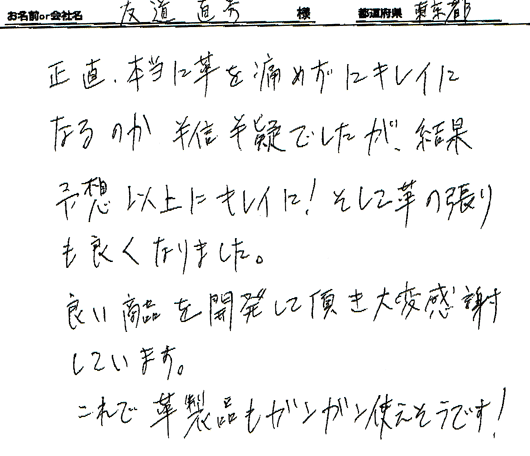 お名前or会社名 友道 直秀 様 都道府県 東京都
正直、本当に革を痛めずにキレイに
なるのか 半信半疑でしたが、結果
予想以上にキレイに!そして革の張り
も良くなりました。
良い商品を開発して頂き大変感謝
しています。
これで革製品もガンガン使えそうです!